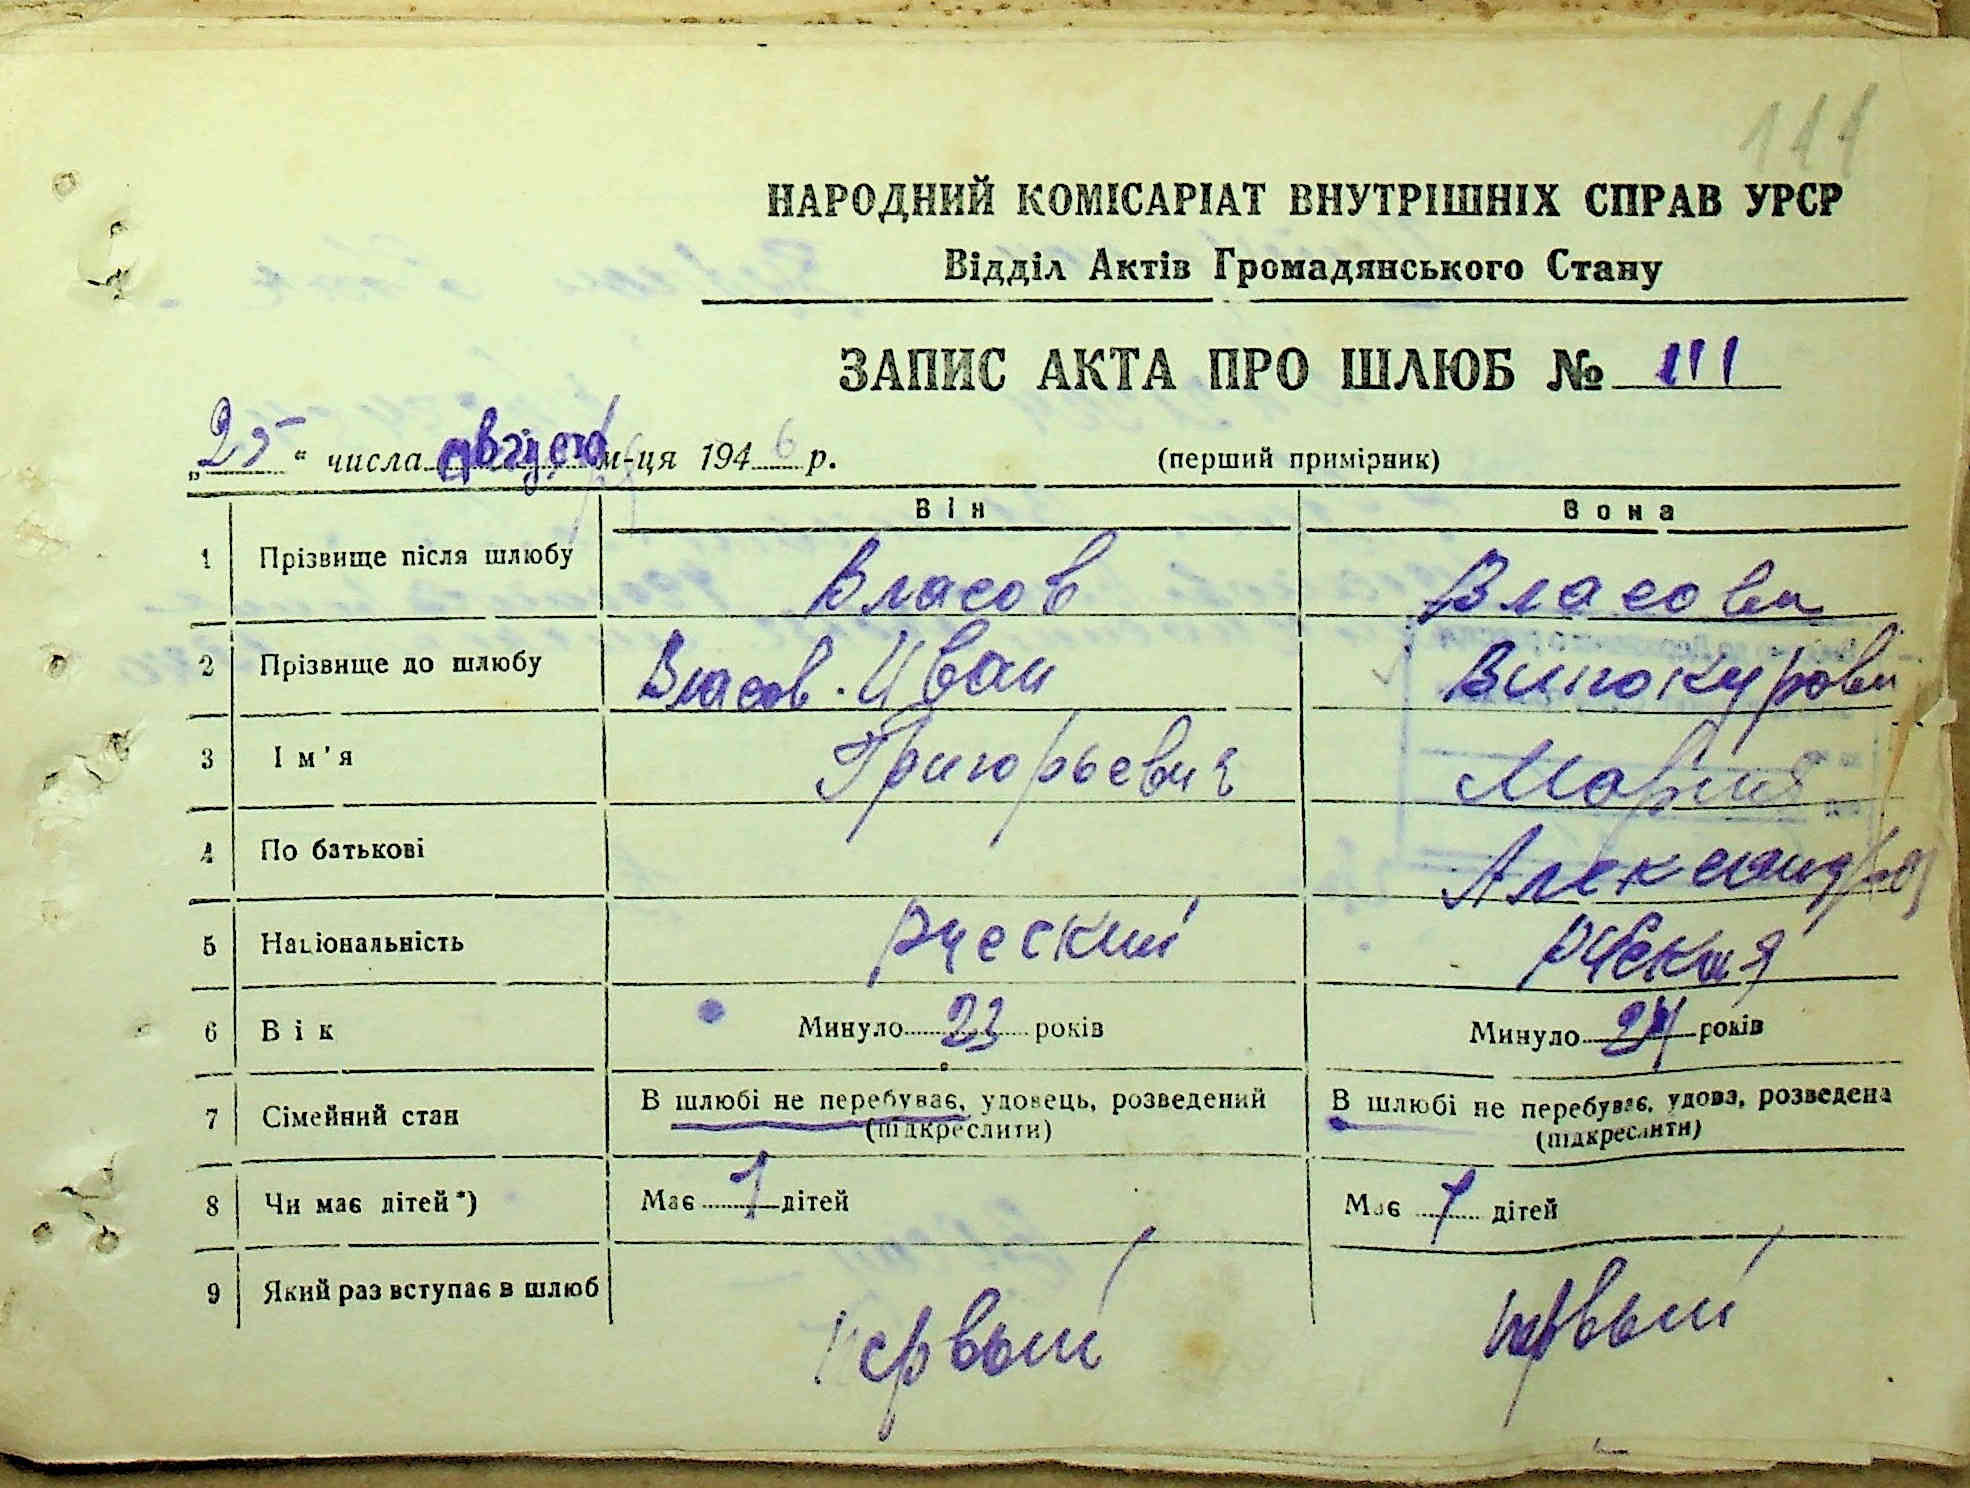 111
НАРОДНИЙ КОМІСАРІАТ ВНУТРІШНІХ СПРАВ УРСР
Відділ Актів Громадянського Стану
ЗАПИС АКТА ПРО ШЛЮБ № 111
„25“ числа августа м-ця 1946 р. (перший примірник)
Він Вона
1 Прізвище після шлюбу Власов Власова
2 Прізвище до шлюбу Власов. Иван Винокурова
3 Ім'я Григорьевич Мария
4 По батькові Александров
5 Національність русский русская
6 Вік Минуло 23 років Минуло 24 років
7 Сімейний стан В шлюбі не перебуває, удовець, розведений В шлюбі не перебуває, удова, розведена
(підкреслити) (підкреслити)
8 Чи має дітей*) Має 1 дітей Має 1 дітей
9 Який раз вступає в шлюб первый первый